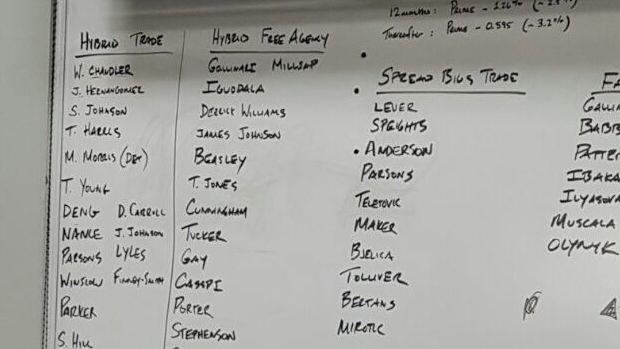 12 months: Prime - 
Thereafter: Prime - 0.595 (-3.2%)
HYBRID TRADE
W. CHANDLER
J. HERNANGOMEZ
S. JOHNSON
T. HARRIS
M. MORRIS (DET)
T. YOUNG
DENG D. CARROLL
NANCE J. JOHNSON
PARSONS LYLES
WINSLOW FINNEY-SMITH
PARKER
S. HILL
HYBRID FREE AGENCY
GALLINARI MILLSAP
IGUODALA
DERRICK WILLIAMS
JAMES JOHNSON
BEASLEY
T. JONES
CUNNINGHAM
TUCKER
GAY
CASSPI
PORTER
STEPHENSON
SPREAD BIGS TRADE
LEUER
SPEIGHTS
• ANDERSON
PARSONS
TELETOVIC
MAKER
BJELICA
TOLLIVER
BERTANS
MIROTIC
FA
GALLIN
BABB
PATTER
IBAKA
ILYASOVA
MUSCALA
OLYNYK